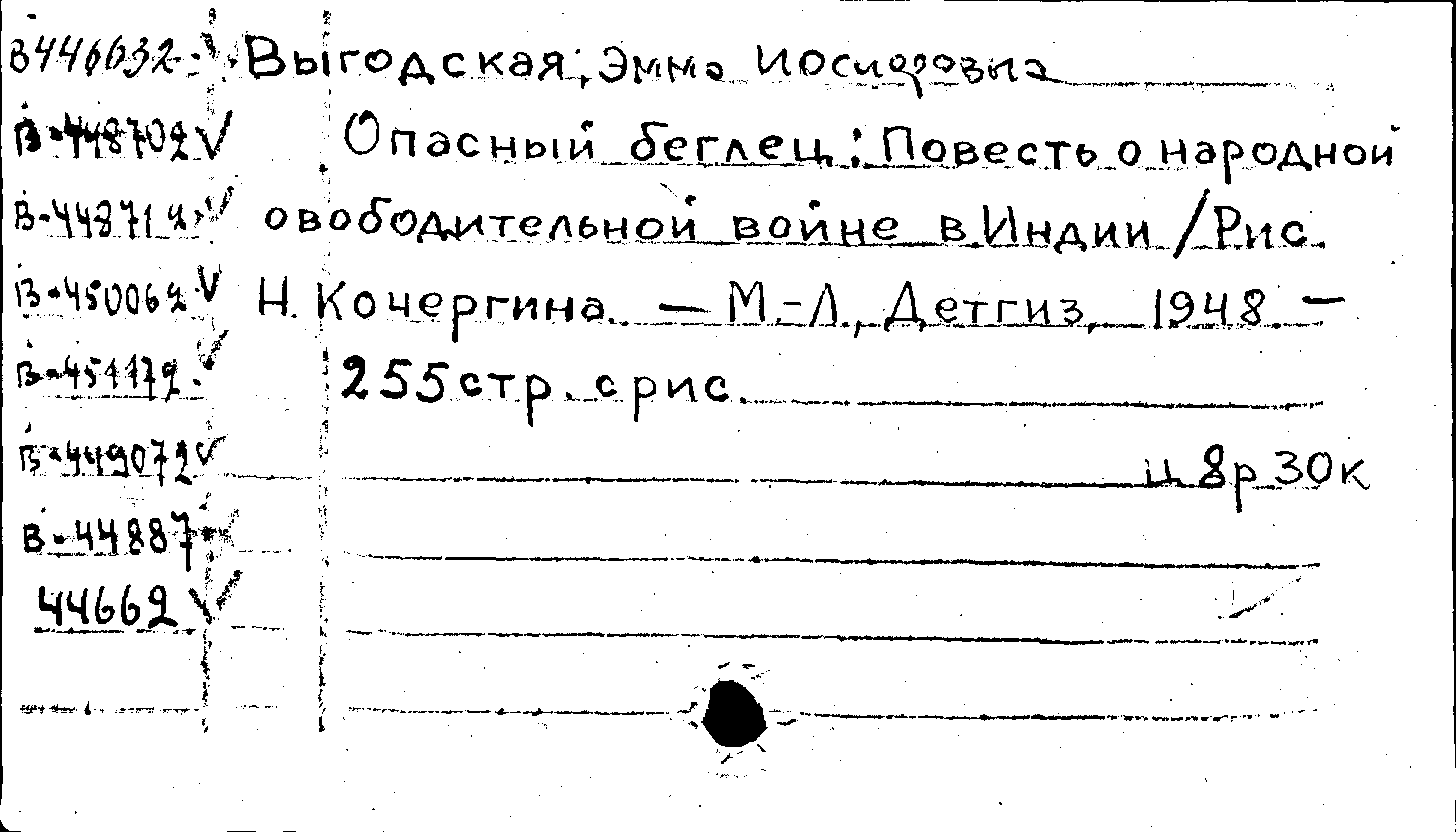 В446632 Выгодская, Эмма Иосифовна
В-448702 Опасный беглец: Повесть о народной
В-448712 овободительной войне в Индии / Рис.
В-450062 Н. Кочергина. — М.-Л., Детгиз, 1948 —
В-451172 255 стр. с рис.
В-449072 ц 8р 30к
В-44887
44662